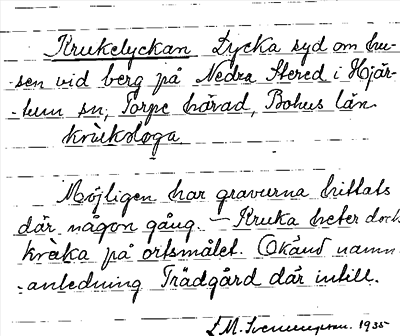 Krukelyckan Lycka syd om hu-
-sen vid berg på Nedra Stered i Hjär-
-tum sn, Torpe härad, Bohus län.
krùkeloga
Möjligen har gravurna hittats
där någon gång. — Kruka heter dock
kràka på ortsmålet. Okänd namn-
-anledning Trädgård där intill.
L.M. Svenungsson. 1935